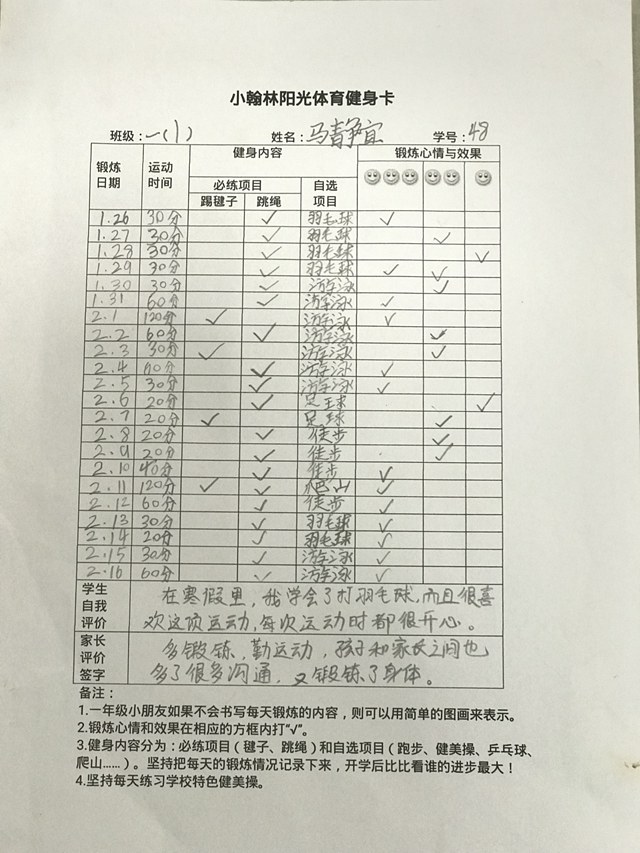 小翰林阳光体育健身卡
班级：一(1) 姓名：马静宜 学号：48
锻炼日期 运动时间 健身内容 锻炼心情与效果
必练项目 自选项目
踢毽子 跳绳
1.26 30分 ✓ 羽毛球 ✓
1.27 30分 ✓ 羽毛球 ✓
1.28 30分 ✓ 羽毛球 ✓
1.29 30分 ✓ 羽毛球 ✓ ✓
1.30 30分 ✓ 游泳 ✓
1.31 60分 ✓ 游泳 ✓
2.1 120分 ✓ 游泳 ✓
2.2 60分 ✓ 游泳 ✓
2.3 30分 ✓ 游泳 ✓
2.4 分 ✓ 游泳 ✓
2.5 30分 ✓ 游泳 ✓
2.6 20分 ✓ 足球 ✓
2.7 20分 ✓ 足球 ✓
2.8 20分 ✓ 徒步 ✓
2.9 20分 ✓ 徒步 ✓
2.10 40分 ✓ 徒步 ✓
2.11 120分 ✓ ✓ 爬山 ✓
2.12 60分 ✓ 徒步 ✓
2.13 30分 ✓ 羽毛球 ✓
2.14 20分 ✓ 羽毛球 ✓
2.15 30分 ✓ 游泳 ✓
2.16 60分 ✓ 游泳 ✓
学生自我评价 在寒假里，我学会了打羽毛球，而且很喜
欢这项运动，每次运动时都很开心。
家长评价签字 多锻炼，勤运动，孩子和家长之间也
多了很多沟通，又锻炼了身体。
备注：
1.一年级小朋友如果不会书写每天锻炼的内容，则可以用简单的图画来表示。
2.锻炼心情和效果在相应的方框内打“√”。
3.健身内容分为：必练项目（毽子、跳绳）和自选项目（跑步、健美操、乒乓球、
爬山……）。坚持把每天的锻炼情况记录下来，开学后比比看谁的进步最大！
4.坚持每天练习学校特色健美操。